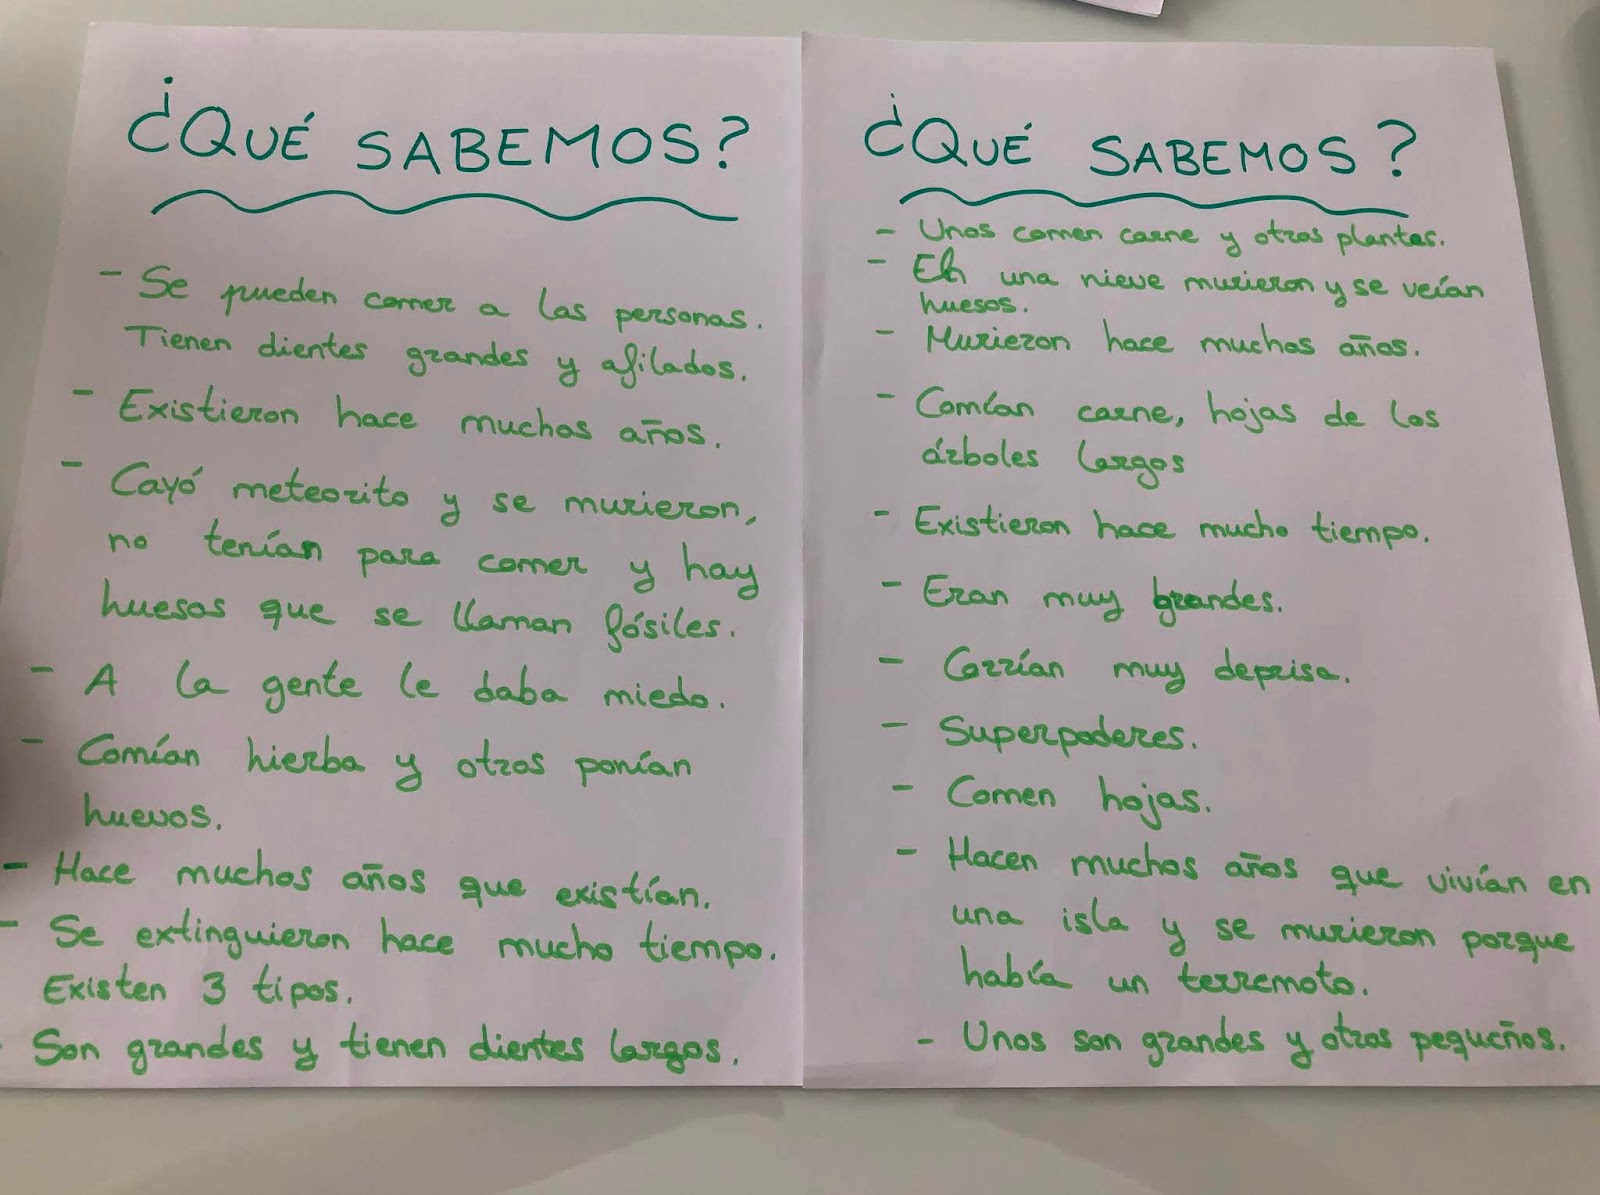 ¿QUÉ SABEMOS?
- Se pueden comer a las personas.
Tienen dientes grandes y afilados.
- Existieron hace muchos años.
- Cayó meteorito y se murieron,
no tenían para comer y hay
huesos que se llaman fósiles.
- A la gente le daba miedo.
- Comían hierba y otros ponían
huevos.
- Hace muchos años que existían.
- Se extinguieron hace mucho tiempo.
Existen 3 tipos.
- Son grandes y tienen dientes largos.
¿QUÉ SABEMOS?
- Unos comen carne y otros plantas.
- En una nieve murieron y se veían
huesos.
- Murieron hace muchos años.
- Comían carne, hojas de los
árboles largos
- Existieron hace mucho tiempo.
- Eran muy grandes.
- Corrían muy deprisa.
- Superpoderes.
- Comen hojas.
- Hacen muchos años que vivían en
una isla y se murieron porque
había un terremoto.
- Unos son grandes y otros pequeños.